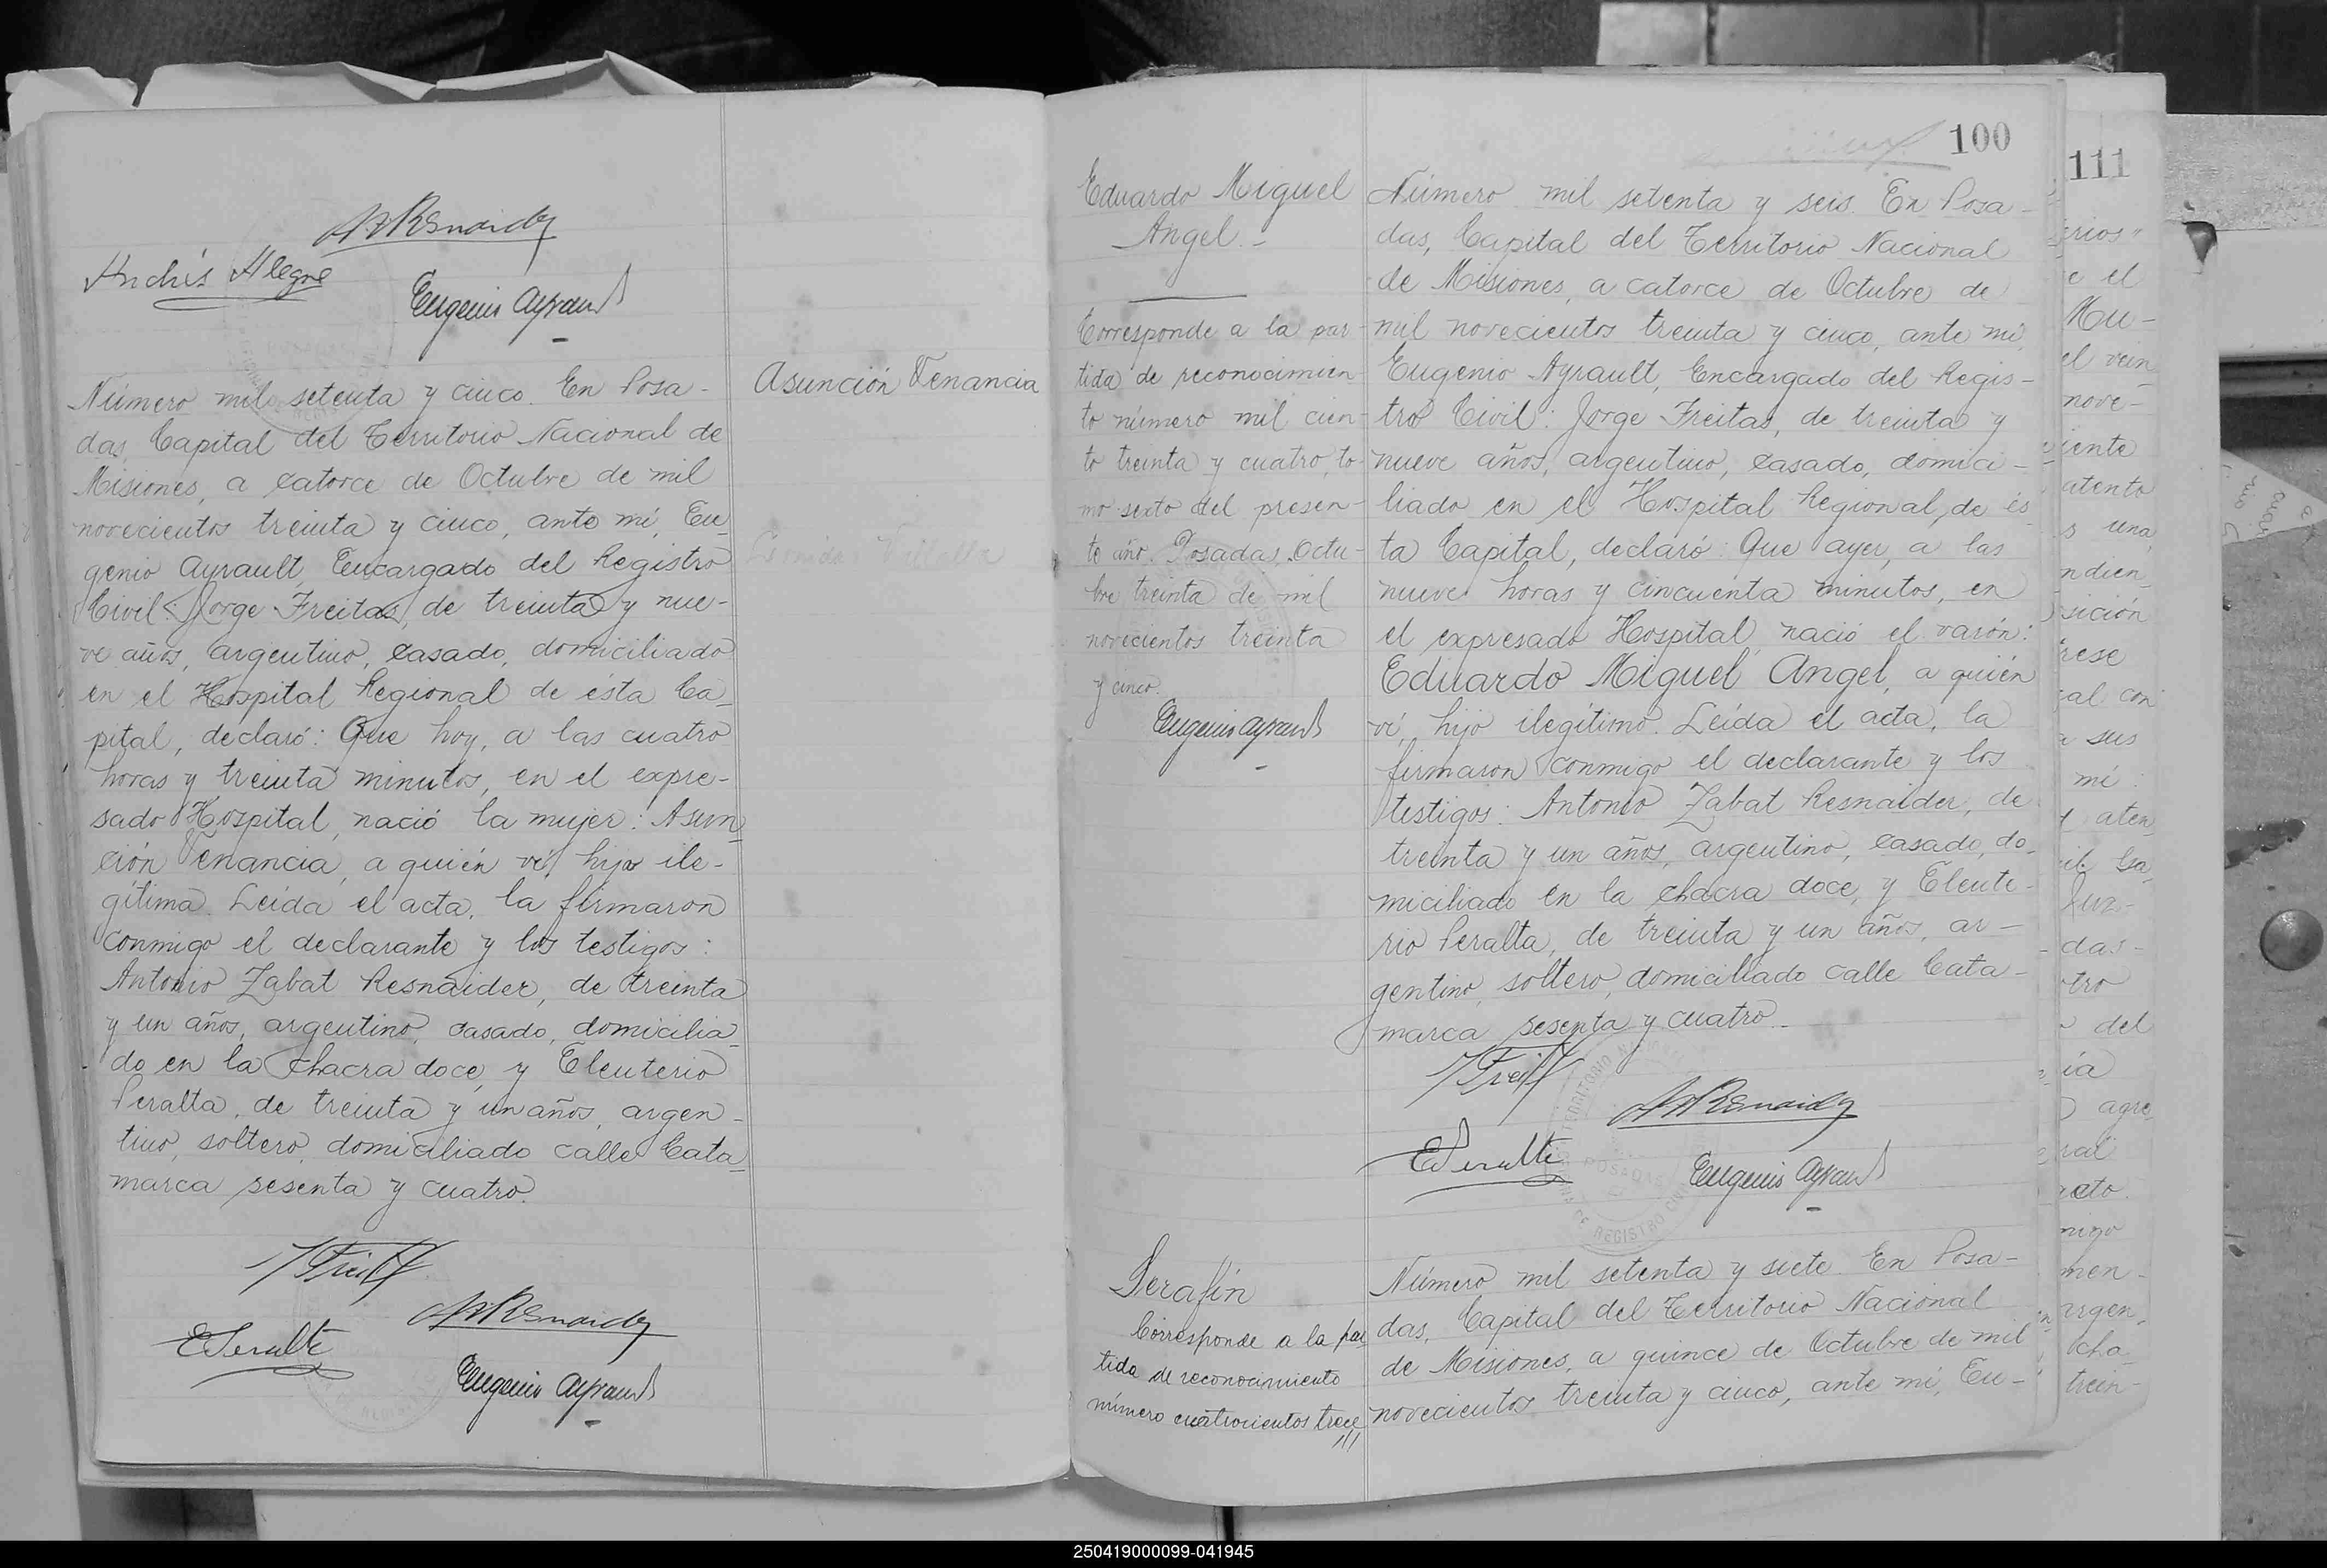 Andrés Alegre
Eugenio Ayrault
Número mil setenta y cinco. En Posa-
das, Capital del Territorio Nacional de
Misiones, a catorce de Octubre de mil
novecientos treinta y cinco, ante mí, Eu-
genio Ayrault, Encargado del Registro
Civil: Jorge Freitas, de treinta y nue-
ve años, argentino, casado, domiciliado
en el Hospital Regional de ésta Ca-
pital, declaró: Que hoy, a las cuatro
horas y treinta minutos, en el expre-
sado Hospital, nació la mujer: Asun-
ción Venancia, a quién ví, hija ile-
gítima. Leída el acta, la firmaron
conmigo el declarante y los testigos:
Antonio Zabat Resnaider, de treinta
y un años, argentino, casado, domicilia-
do en la chacra doce, y Eleuterio
Peralta, de treinta y un años, argen-
tino, soltero, domiciliado calle Cata-
marca sesenta y cuatro.
E Peralta
Eugenio Ayrault
Asunción Venancia
100
Eduardo Miguel
Angel.-
Corresponde a la par-
tida de reconocimien-
to número mil cien-
to treinta y cuatro, to-
mo sexto del presen-
te año. Posadas, Octu-
bre treinta de mil
novecientos treinta
y cinco.
Eugenio Ayrault
Número mil setenta y seis. En Posa-
das, Capital del Territorio Nacional
de Misiones, a catorce de Octubre de
mil novecientos treinta y cinco, ante mí,
Eugenio Ayrault, Encargado del Regis-
tro Civil: Jorge Freitas, de treinta y
nueve años, argentino, casado, domici-
liado en el Hospital Regional, de és-
ta Capital, declaró: Que ayer, a las
nueve horas y cincuenta minutos, en
el expresado Hospital, nació el varón:
Eduardo Miguel Angel, a quién
ví, hijo ilegítimo. Leída el acta, la
firmaron conmigo el declarante y los
testigos: Antonio Zabat Resnaider, de
treinta y un años, argentino, casado, do-
miciliado en la chacra doce, y Eleute-
rio Peralta, de treinta y un años, ar-
gentino, soltero, domiciliado calle Cata-
marca sesenta y cuatro.
E Peralta
Eugenio Ayrault
POSADAS
Serafín
Corresponde a la par-
tida de reconocimiento
número cuatrocientos trece
///
Número mil setenta y siete. En Posa-
das, Capital del Territorio Nacional
de Misiones, a quince de Octubre de mil
novecientos treinta y cinco, ante mí, Eu-
111
e el
Mu-
el vein
nove-
iente
atento
s una
ndien
sición
rese
al con
a sus
mí
aten
das-
tro
del
ía
agre
ral
acto.
migo
men-
argen
cha
trein-
250419000099-041945